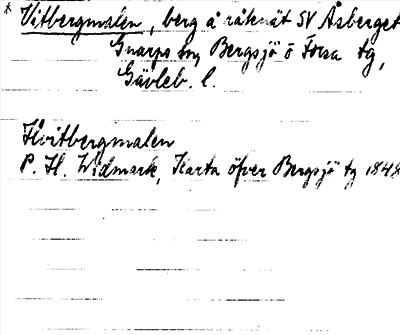 * Vitbergmalen, berg å råknät SV Åsberget
Gnarps sn, Bergsjö o Forsa tg,
Gävleb. l.
Hvitbergmalen
P. H. Widmark, Karta öfver Bergsjö tg 1848